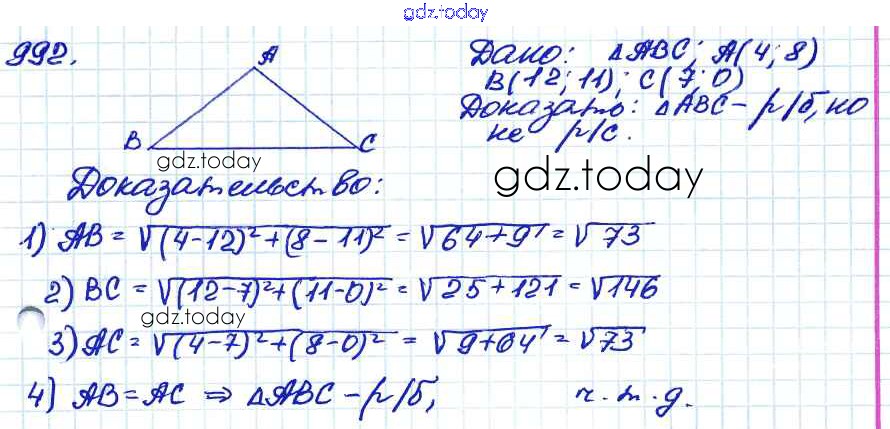 gdz.today
992.
A
B
C
Дано: △ABC; A(4; 8)
B(12; 11); C(7; 0)
Доказать: △ABC – р/б, но
не р/с.
gdz.today
gdz.today
Доказательство:
1) AB = √(4-12)²+(8-11)² = √64+9 = √73
2) BC = √(12-7)²+(11-0)² = √25+121 = √146
gdz.today
3) AC = √(4-7)²+(8-0)² = √9+64 = √73
4) AB = AC ⇒ △ABC – р/б, ч.т.д.